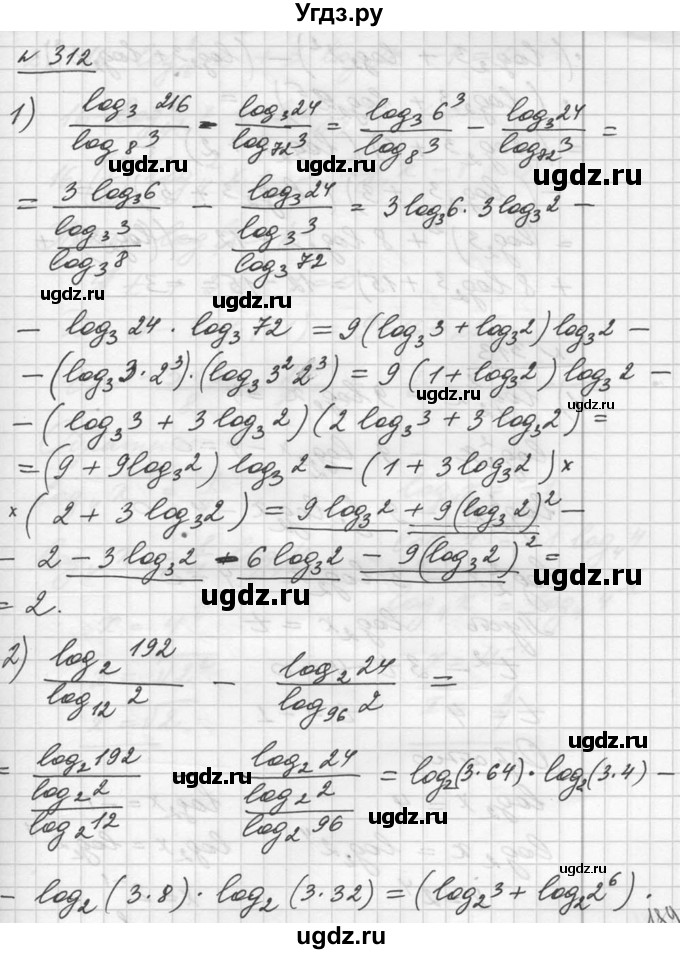 Угдз.ру
№ 312
1) log₃ 216 / log₈ 3 - log₃ 24 / log₇₂ 3 = log₃ 6³ / log₈ 3 - log₃ 24 / log₇₂ 3 =
ugdz.ru ugdz.ru ugdz.ru
= 3 log₃ 6 / (log₃ 3 / log₃ 8) - log₃ 24 / (log₃ 3 / log₃ 72) = 3 log₃ 6 · 3 log₃ 2 -
ugdz.ru ugdz.ru
- log₃ 24 · log₃ 72 = 9 (log₃ 3 + log₃ 2) log₃ 2 -
ugdz.ru ugdz.ru
- (log₃ 3 · 2³) · (log₃ 3² 2³) = 9 (1 + log₃ 2) log₃ 2 -
ugdz.ru
- (log₃ 3 + 3 log₃ 2)(2 log₃ 3 + 3 log₃ 2) =
= (9 + 9 log₃ 2) log₃ 2 - (1 + 3 log₃ 2) ×
ugdz.ru
× (2 + 3 log₃ 2) = 9 log₃ 2 + 9 (log₃ 2)² -
ugdz.ru
- 2 - 3 log₃ 2 - 6 log₃ 2 - 9 (log₃ 2)² =
ugdz.ru
= 2.
ugdz.ru
2) log₂ 192 / log₁₂ 2 - log₂ 24 / log₉₆ 2 =
ugdz.ru
= log₂ 192 / (log₂ 2 / log₂ 12) - log₂ 24 / (log₂ 2 / log₂ 96) = log₂ (3·64) · log₂ (3·4) -
ugdz.ru ugdz.ru ugdz.ru
- log₂ (3·8) · log₂ (3·32) = (log₂ 3 + log₂ 2⁶) ·
ugdz.ru
189
ugdz.ru
ugdz.ru